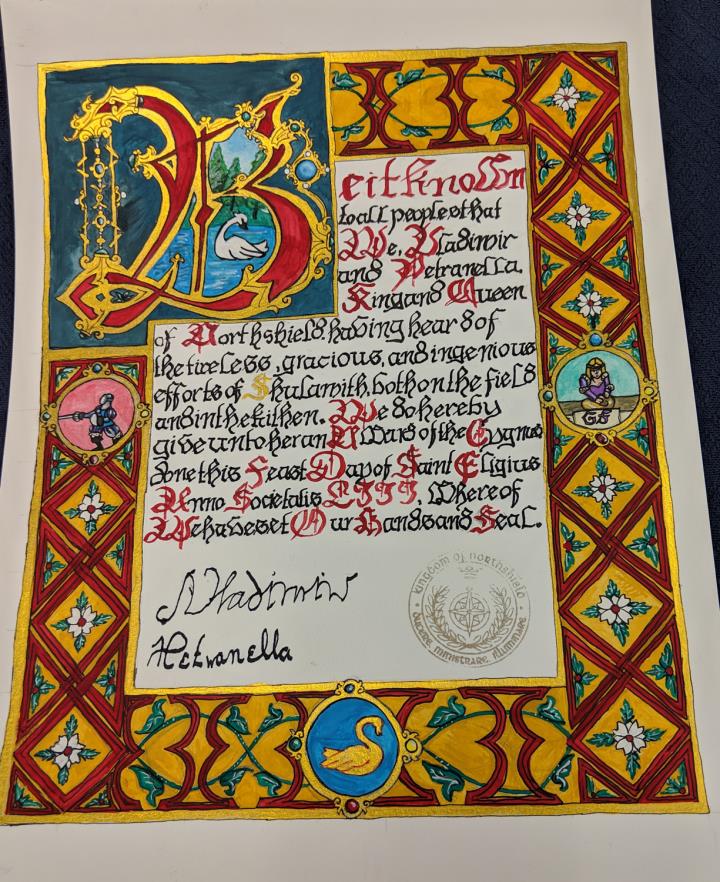 Be it known
to all people that
We, Vladimir
and Petranella.
King and Queen
of Northshield, having heard of
the tireless, gracious, and ingenious
efforts of Shulamith, both on the field
and in the kithen. We do hereby
give unto her an Award of the Cygnus
done this Feast Day of Saint Eligius
Anno Societatis LIII. Where of
We have set Our Hands and Seal.
Vladimir
Petranella
kingdom of northshield
QUAERERE, MINISTRARE, ILLUMINARE
GF